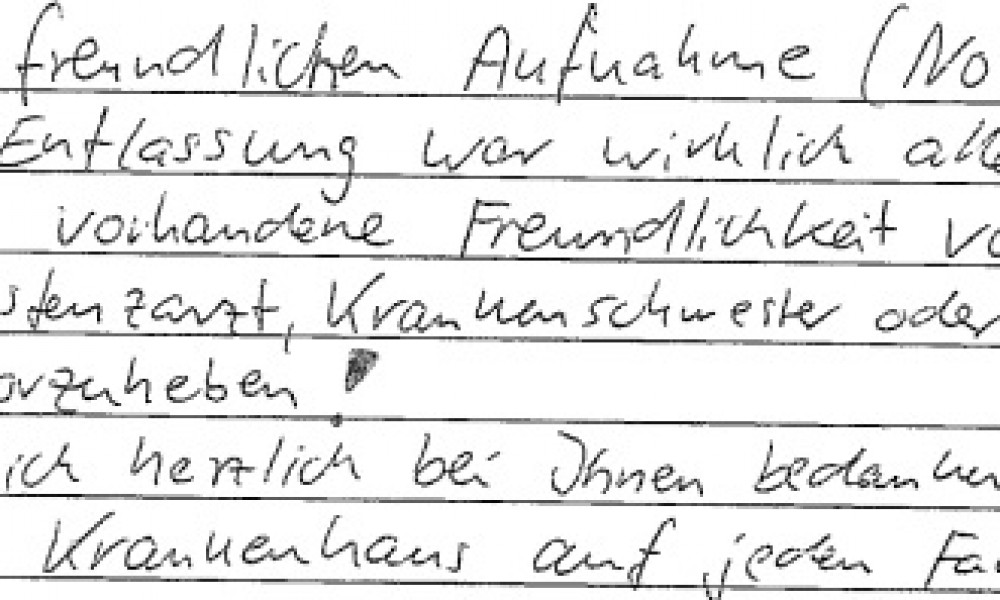 freundlichen Aufnahme (No
Entlassung war wirklich alle
vorhandene Freundlichkeit vo
stenzarzt, Krankenschwester oder
orzuheben!
ich herzlich bei Ihnen bedanken
Krankenhaus auf jeden Fa